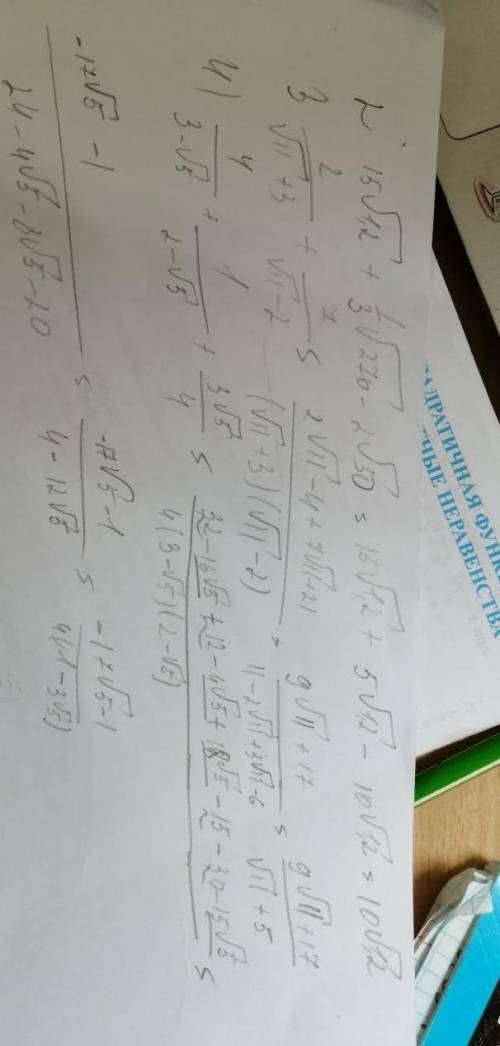 2. 15√12 + 1/3 √276 - 2√50 = 15√12 + 5√12 - 10√12 = 10√12
3 2/(√11+3) + 7/(√11-2) = (2√11-4+7√11+21)/((√11+3)(√11-2)) = (9√11+17)/(11-2√11+3√11-6) = (9√11+17)/(√11+5)
4) 4/(3-√5) + 1/(2-√5) + 3√5/4 = (32-16√5+12-4√5+18√5-15-30-15√5)/(4(3-√5)(2-√5)) =
(-17√5-1)/(24-4√5-8√5-20) = (-17√5-1)/(4-12√5) = (-17√5-1)/(4(1-3√5))
АДРАТИЧНАЯ ФУНК
ТНЫЕ НЕРАВЕНСТВА